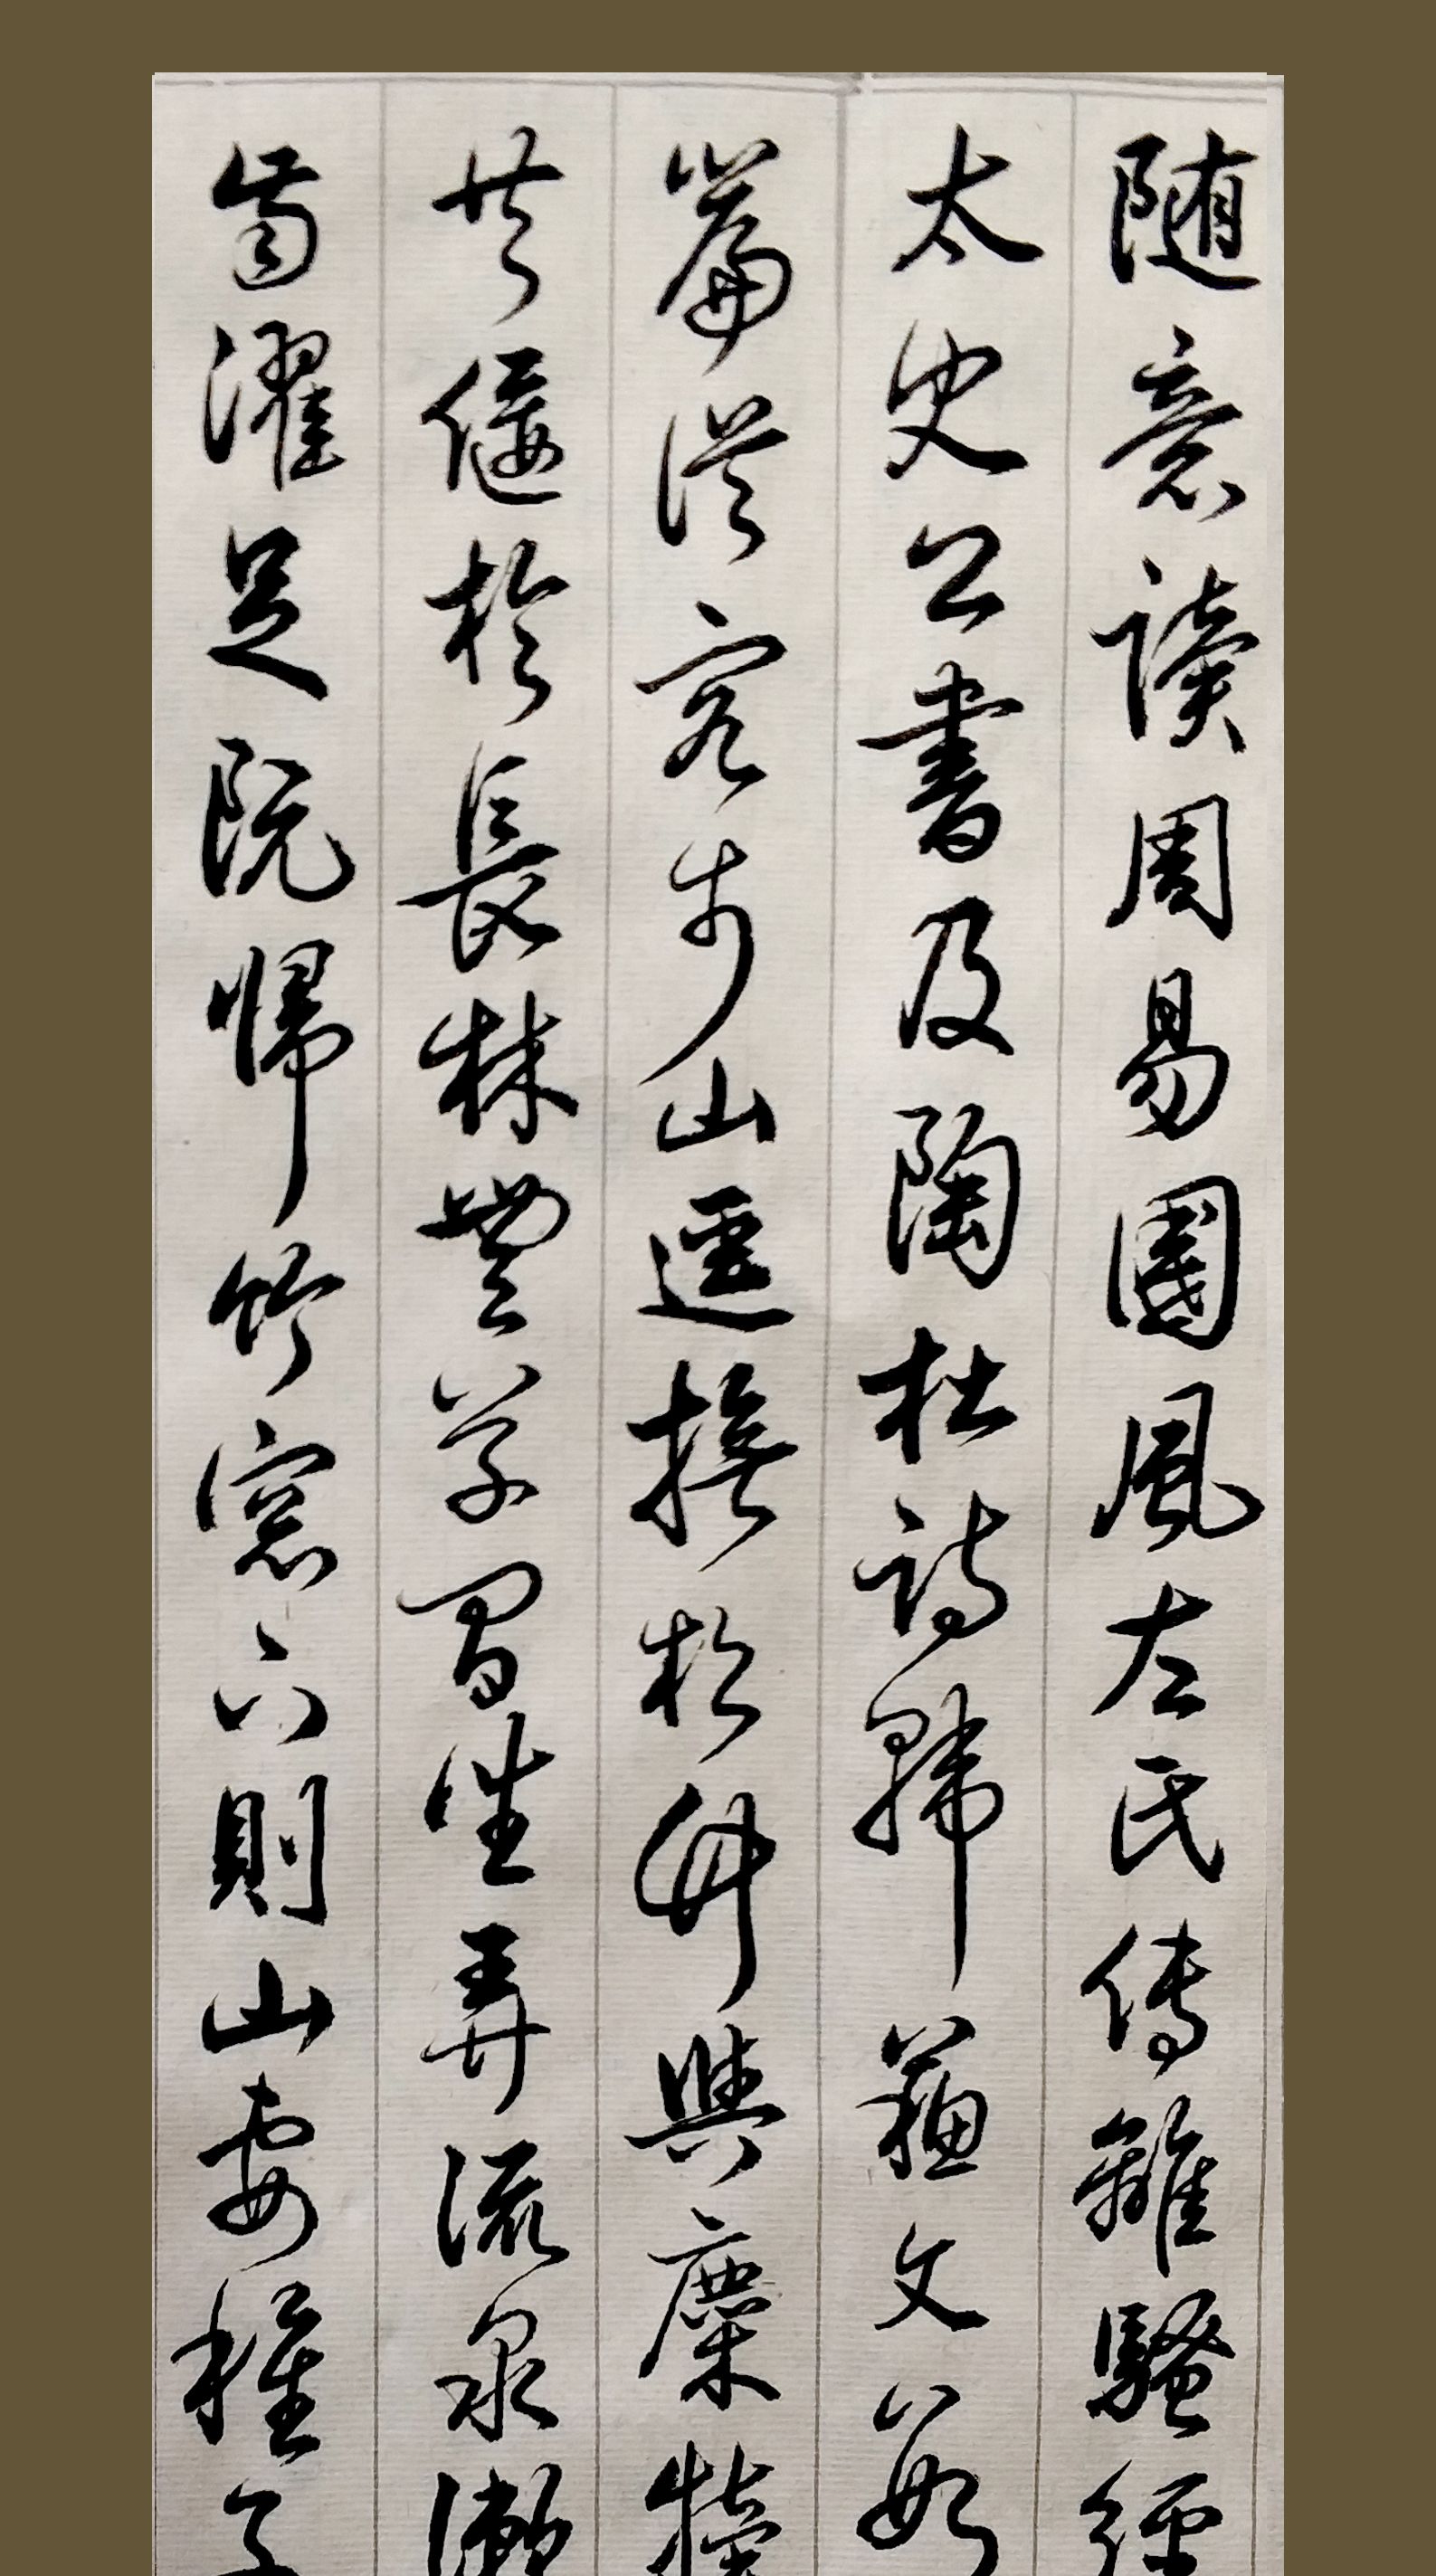 随意讀周易國風左氏傳離騷經
太史公書及陶杜詩韓蘇文數
篇從容步山逕撫松竹與麋犢
共偃於長林豐草間坐弄流泉漱
齒濯足既歸竹窗下則山妻稚子